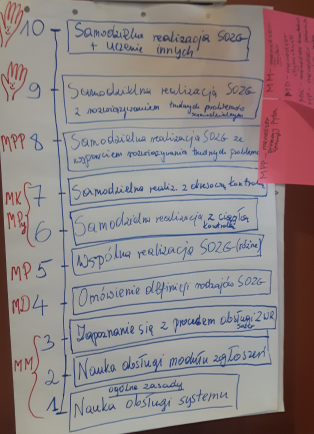 10 Samodzielna realizacja SOZG
+ Uczenie innych
9 Samodzielna realizacja SOZG
z rozwiązywaniem trudnych problemów
MPP 8 Samodzielna realizacja SOZG ze
wsparciem rozwiązywania trudnych problemów
MK 7 Samodzielna realiz. z okresową kontrolą
6 Samodzielna realizacja z ciągłą
kontrolą
MP 5 Wspólna realizacja SOZG (różne)
MD 4 Omówienie definicji rodzajów SOZG
3 Zapoznanie się z procesem obsługi ZWR
MM 2 Nauka obsługi modułu zgłoszeń
ogólne zasady
1 Nauka obsługi systemu